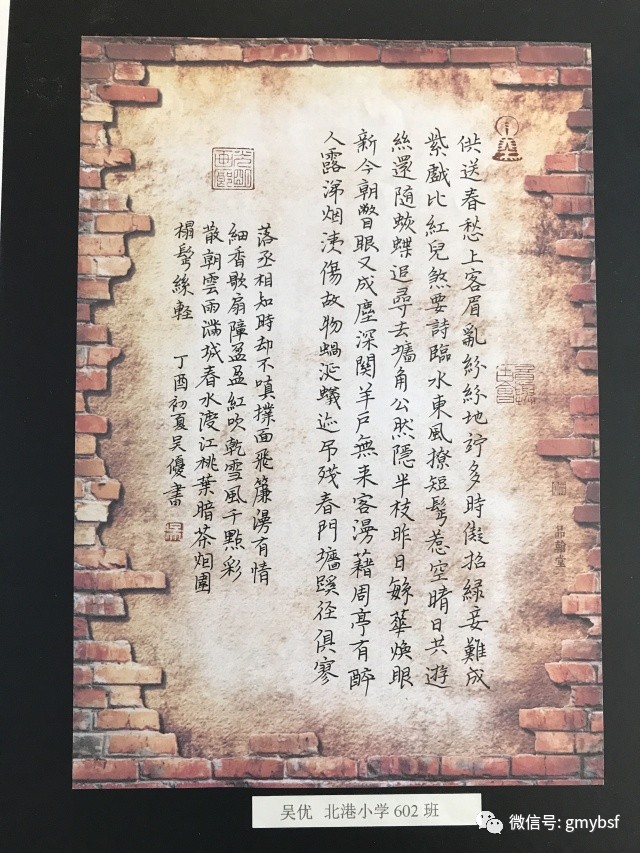 供送春愁上客眉亂紛紛地竚多時儗招綠妾難成
紫戲比紅兒煞要詩臨水東風撩短髩惹空晴日共遊
絲還隨蛺蝶追尋去墻角公然隱半枝昨日緐華煥眼
新今朝瞥眼又成塵深関羊戶無来客漫藉周亭有醉
人露涕烟洟傷故物蝸涎蟻迹吊殘春門墻蹊径俱寥
落丞相知時却不嗔撲面飛簾漫有情
細香歌扇障盈盈紅吹乾雪風千點彩
散朝雲雨滿城春水渡江桃葉暗茶烟圍
榻髩絲輕 丁酉初夏吴優書
品翰堂
吴优 北港小学 602 班
微信号: gmybsf